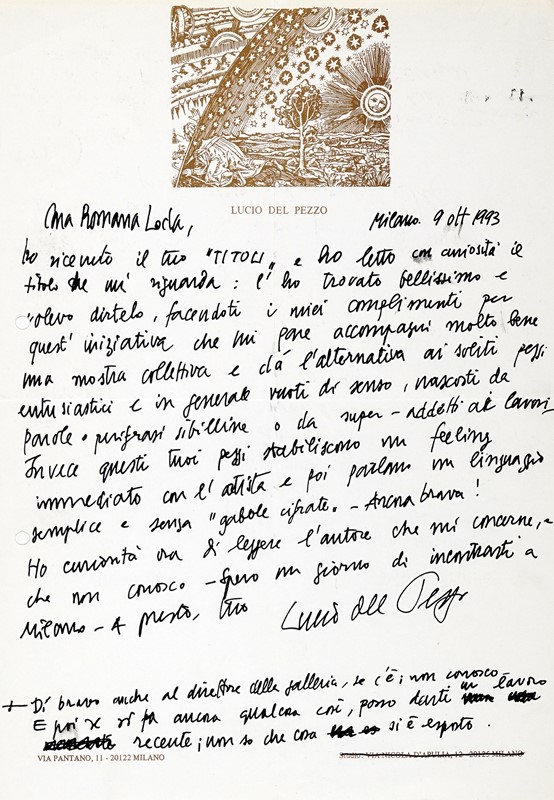 LUCIO DEL PEZZO
Cara Romana Loda,
Milano. 9 ott 1993
ho ricevuto il tuo "TITOLI" e ho letto con curiosità il
titolo che mi riguarda: l'ho trovato bellissimo e
volevo dirtelo, facendoti i miei complimenti per
quest'iniziativa che mi pare accompagni molto bene
una mostra collettiva e dà l'alternativa ai soliti pezzi
entusiastici e in generale vuoti di senso, nascosti da
parole o perifrasi sibilline o da super-addetti ai lavori
Invece questi tuoi pezzi stabiliscono un feeling
immediato con l'artista e poi parlano un linguaggio
semplice e senza "gabole cifrate. - Ancora brava!
Ho curiosità ora di leggere l'autore che mi concerne, e
che non conosco - Spero un giorno di incontrarti a
Milano - A presto, tuo
Lucio del Pezzo
+ Di' bravo anche al direttore della galleria, se c'è; non conosco
E poi x si fa ancora qualcosa così, posso darti un lavoro
recente; non so che cosa si è esposto.
VIA PANTANO, 11 - 20122 MILANO
Studio: VIA NICOLA D'APULIA, 12 - 20125 MILANO